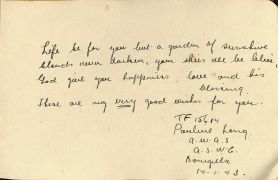 Life be for you but a garden of sunshine
Clouds never darken, your skies all be blue,
God give you happiness love and his
blessing.
These are my very good wishes for you.
TF 15614
Pauline Long.
A.W.A.S
A.S.W.G.
Bonegilla
14.1.43.